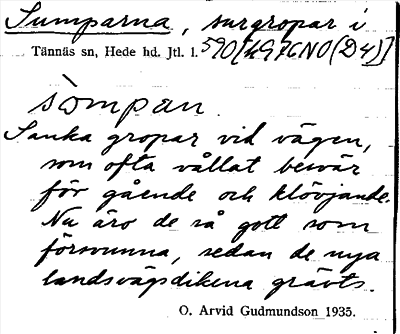 Sumparna, surgropar i
Tännäs sn, Hede hd. Jtl. l. 590 [497CNO (D4)]
sòmpan.
Sanka gropar vid vägen,
som ofta vållat besvär
för gående och klövjande.
Nu äro de så gott som
försvunna, sedan de nya
landsvägsdikena grävts.
O. Arvid Gudmundson 1935.